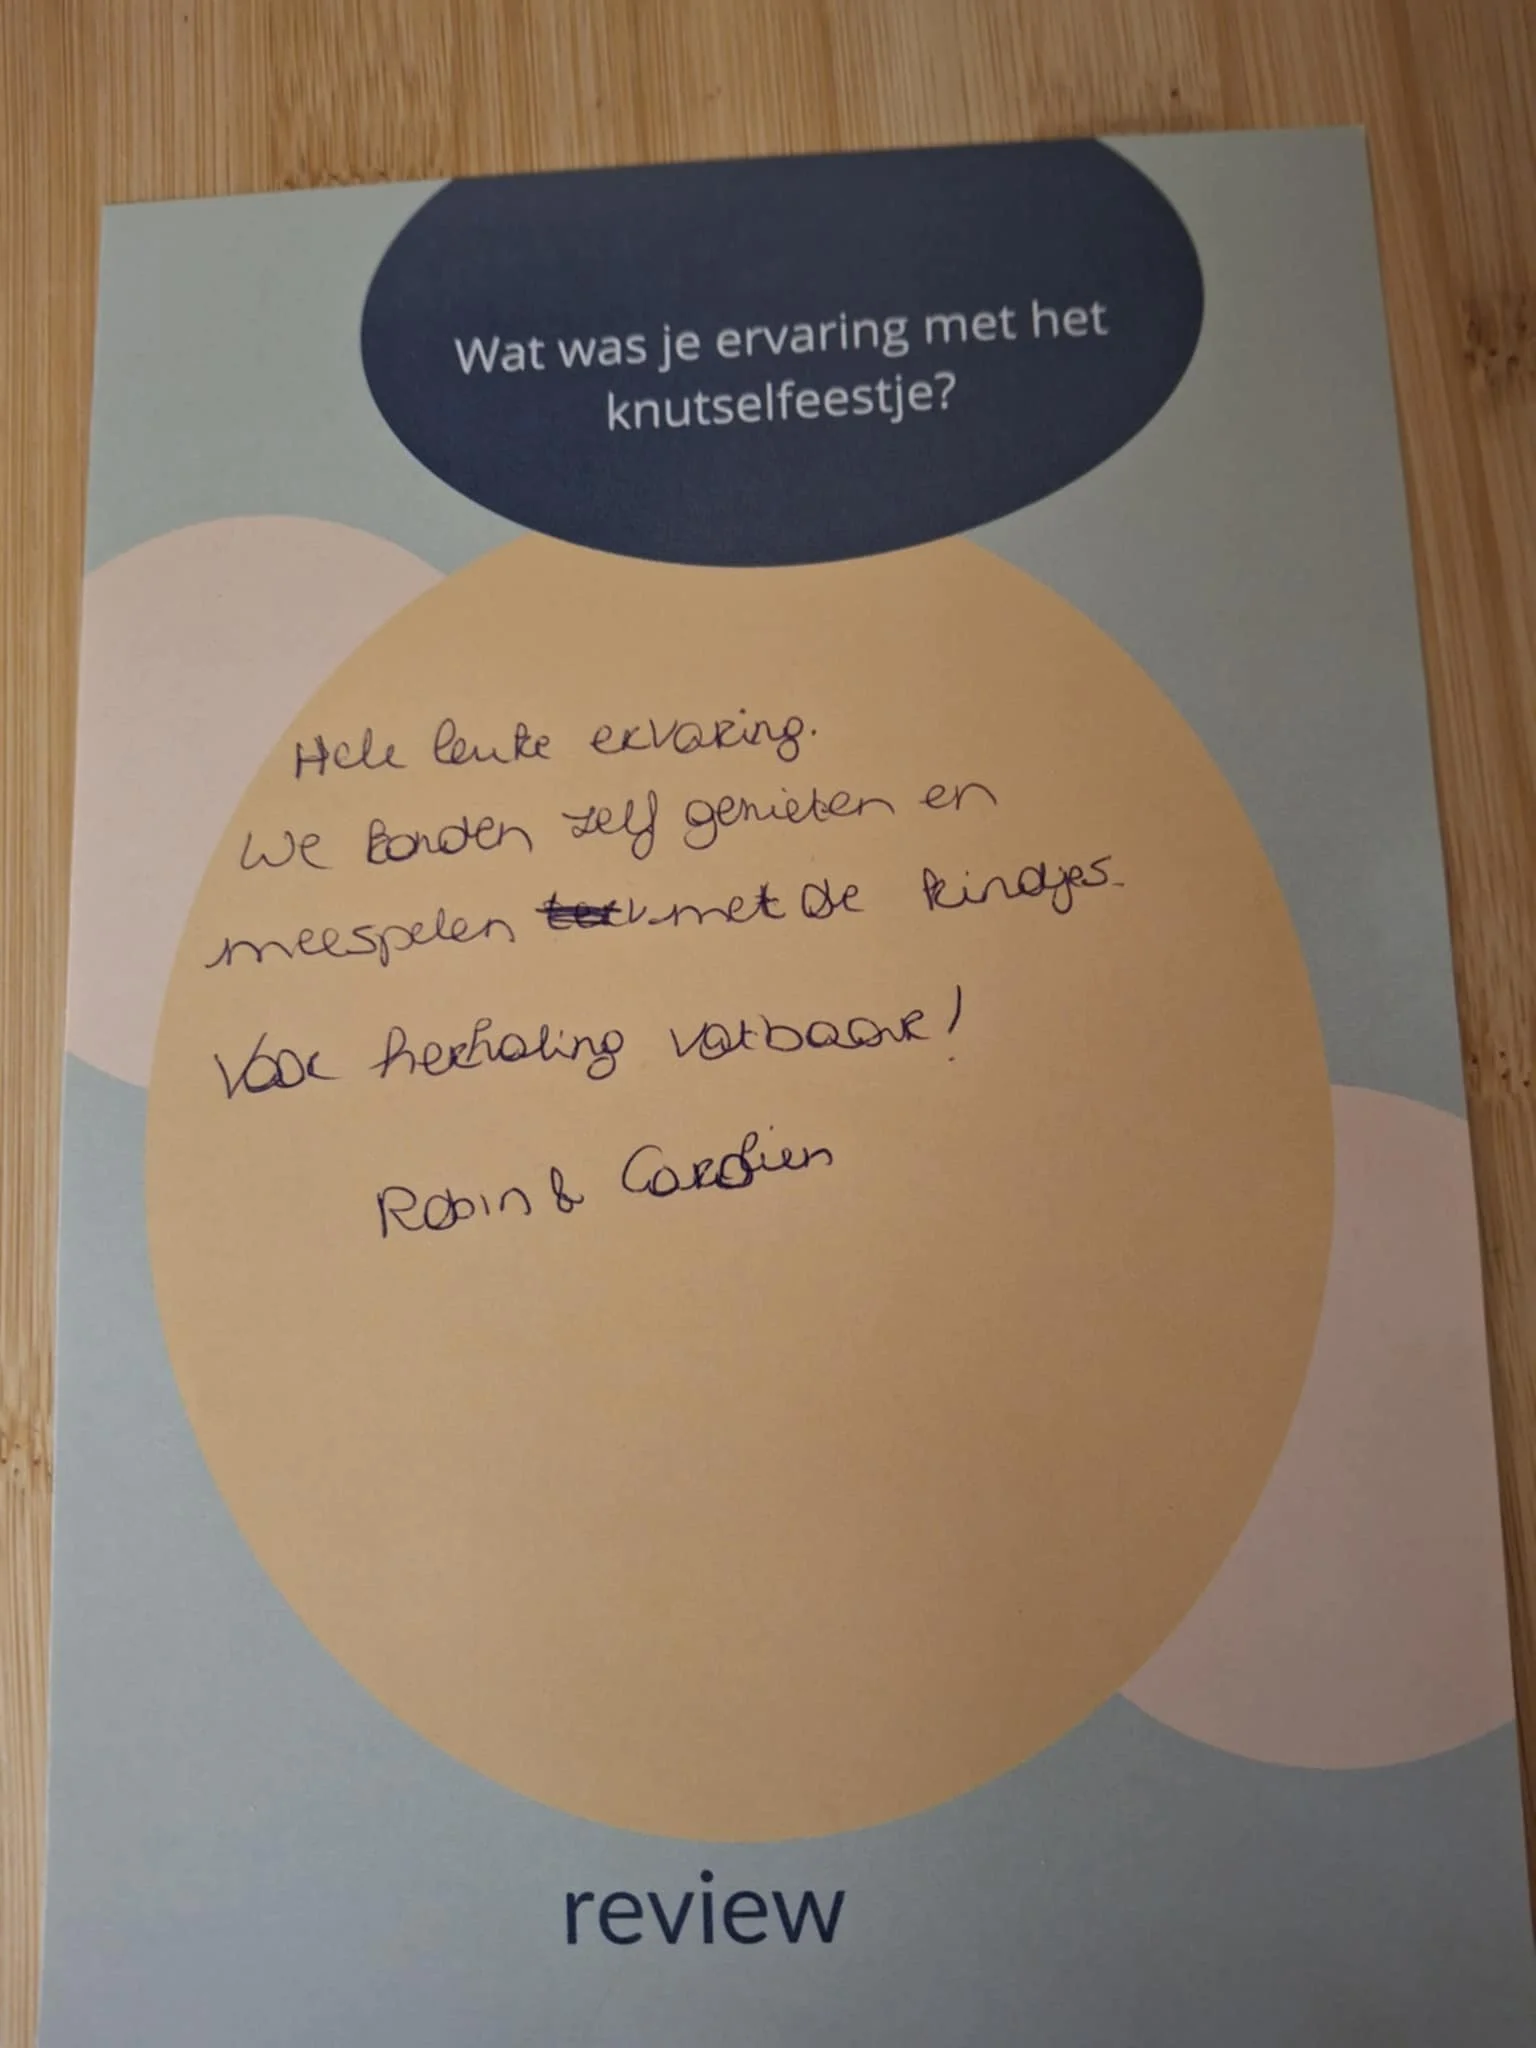 Wat was je ervaring met het
knutselfeestje?
Hele leuke ervaring.
We konden zelf genieten en
meespelen met de kindjes.
Voor herhaling vatbaar!
Robin & Carolien
review